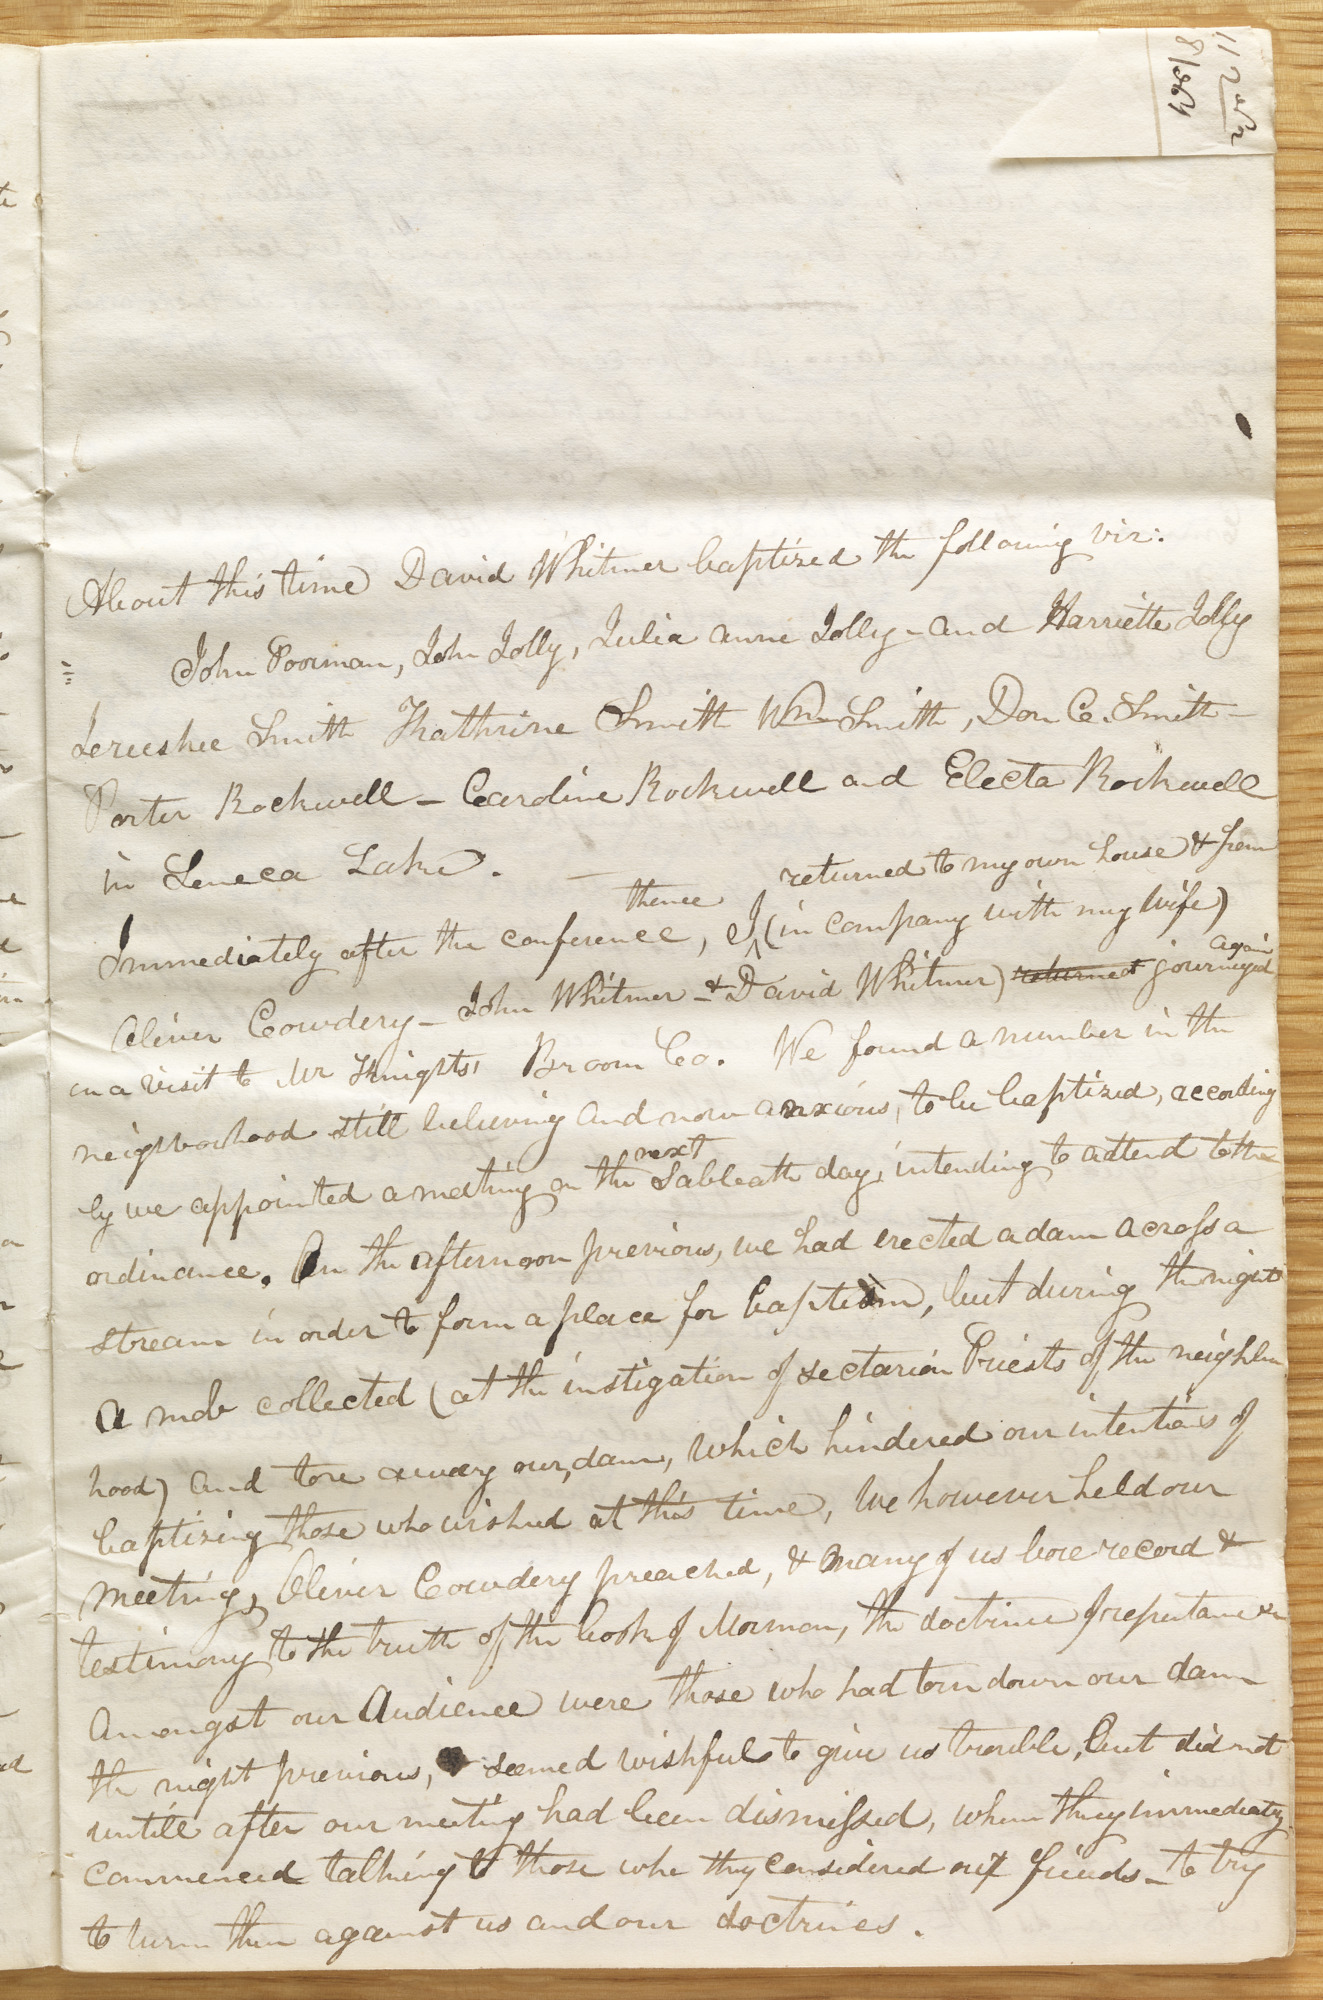 About this time David Whitmer baptized the following viz:
John Poorman, John Jolly, Julia anne Jolly – and Harriette Jolly
Jereeshee Smith Kathrine Smith Wm Smith, Don C. Smith –
Porter Rockwell – Caroline Rockwell and Electa Rockwell
in Seneca Lake. —
returned to my own house & from
thence
Immediately after the conference, I (in company with my wife)
again
Oliver Cowdery – John Whitmer & David Whitmer) returned journeyed
on a visit to Mr Knights, Broom Co. We found a number in the
neighborhood still believing and now anxious, to be baptized, according
next
ly we appointed a meeting on the Sabbeath day, intending to attend to the
ordinance. On the afternoon previous, we had erected a dam across a
stream in order to form a place for baptism, but during the night
a mob collected (at the instigation of sectarian Priests of the neighbor
hood) and tore away our dam, which hindered our intentions of
baptizing those who wished at this time, We however held our
meeting, Oliver Cowdery preached, & many of us bore record &
testimony to the truth of the book of Mormon, the doctrine of repentance &c
Amongst our Audience were those who had torn down our dam
the night previous, seemed wishful to give us trouble, but did not
untill after our meeting had been dismissed, when they immediatly
commenced talking to those who they considered our friends – to try
to turn them against us and our doctrines.